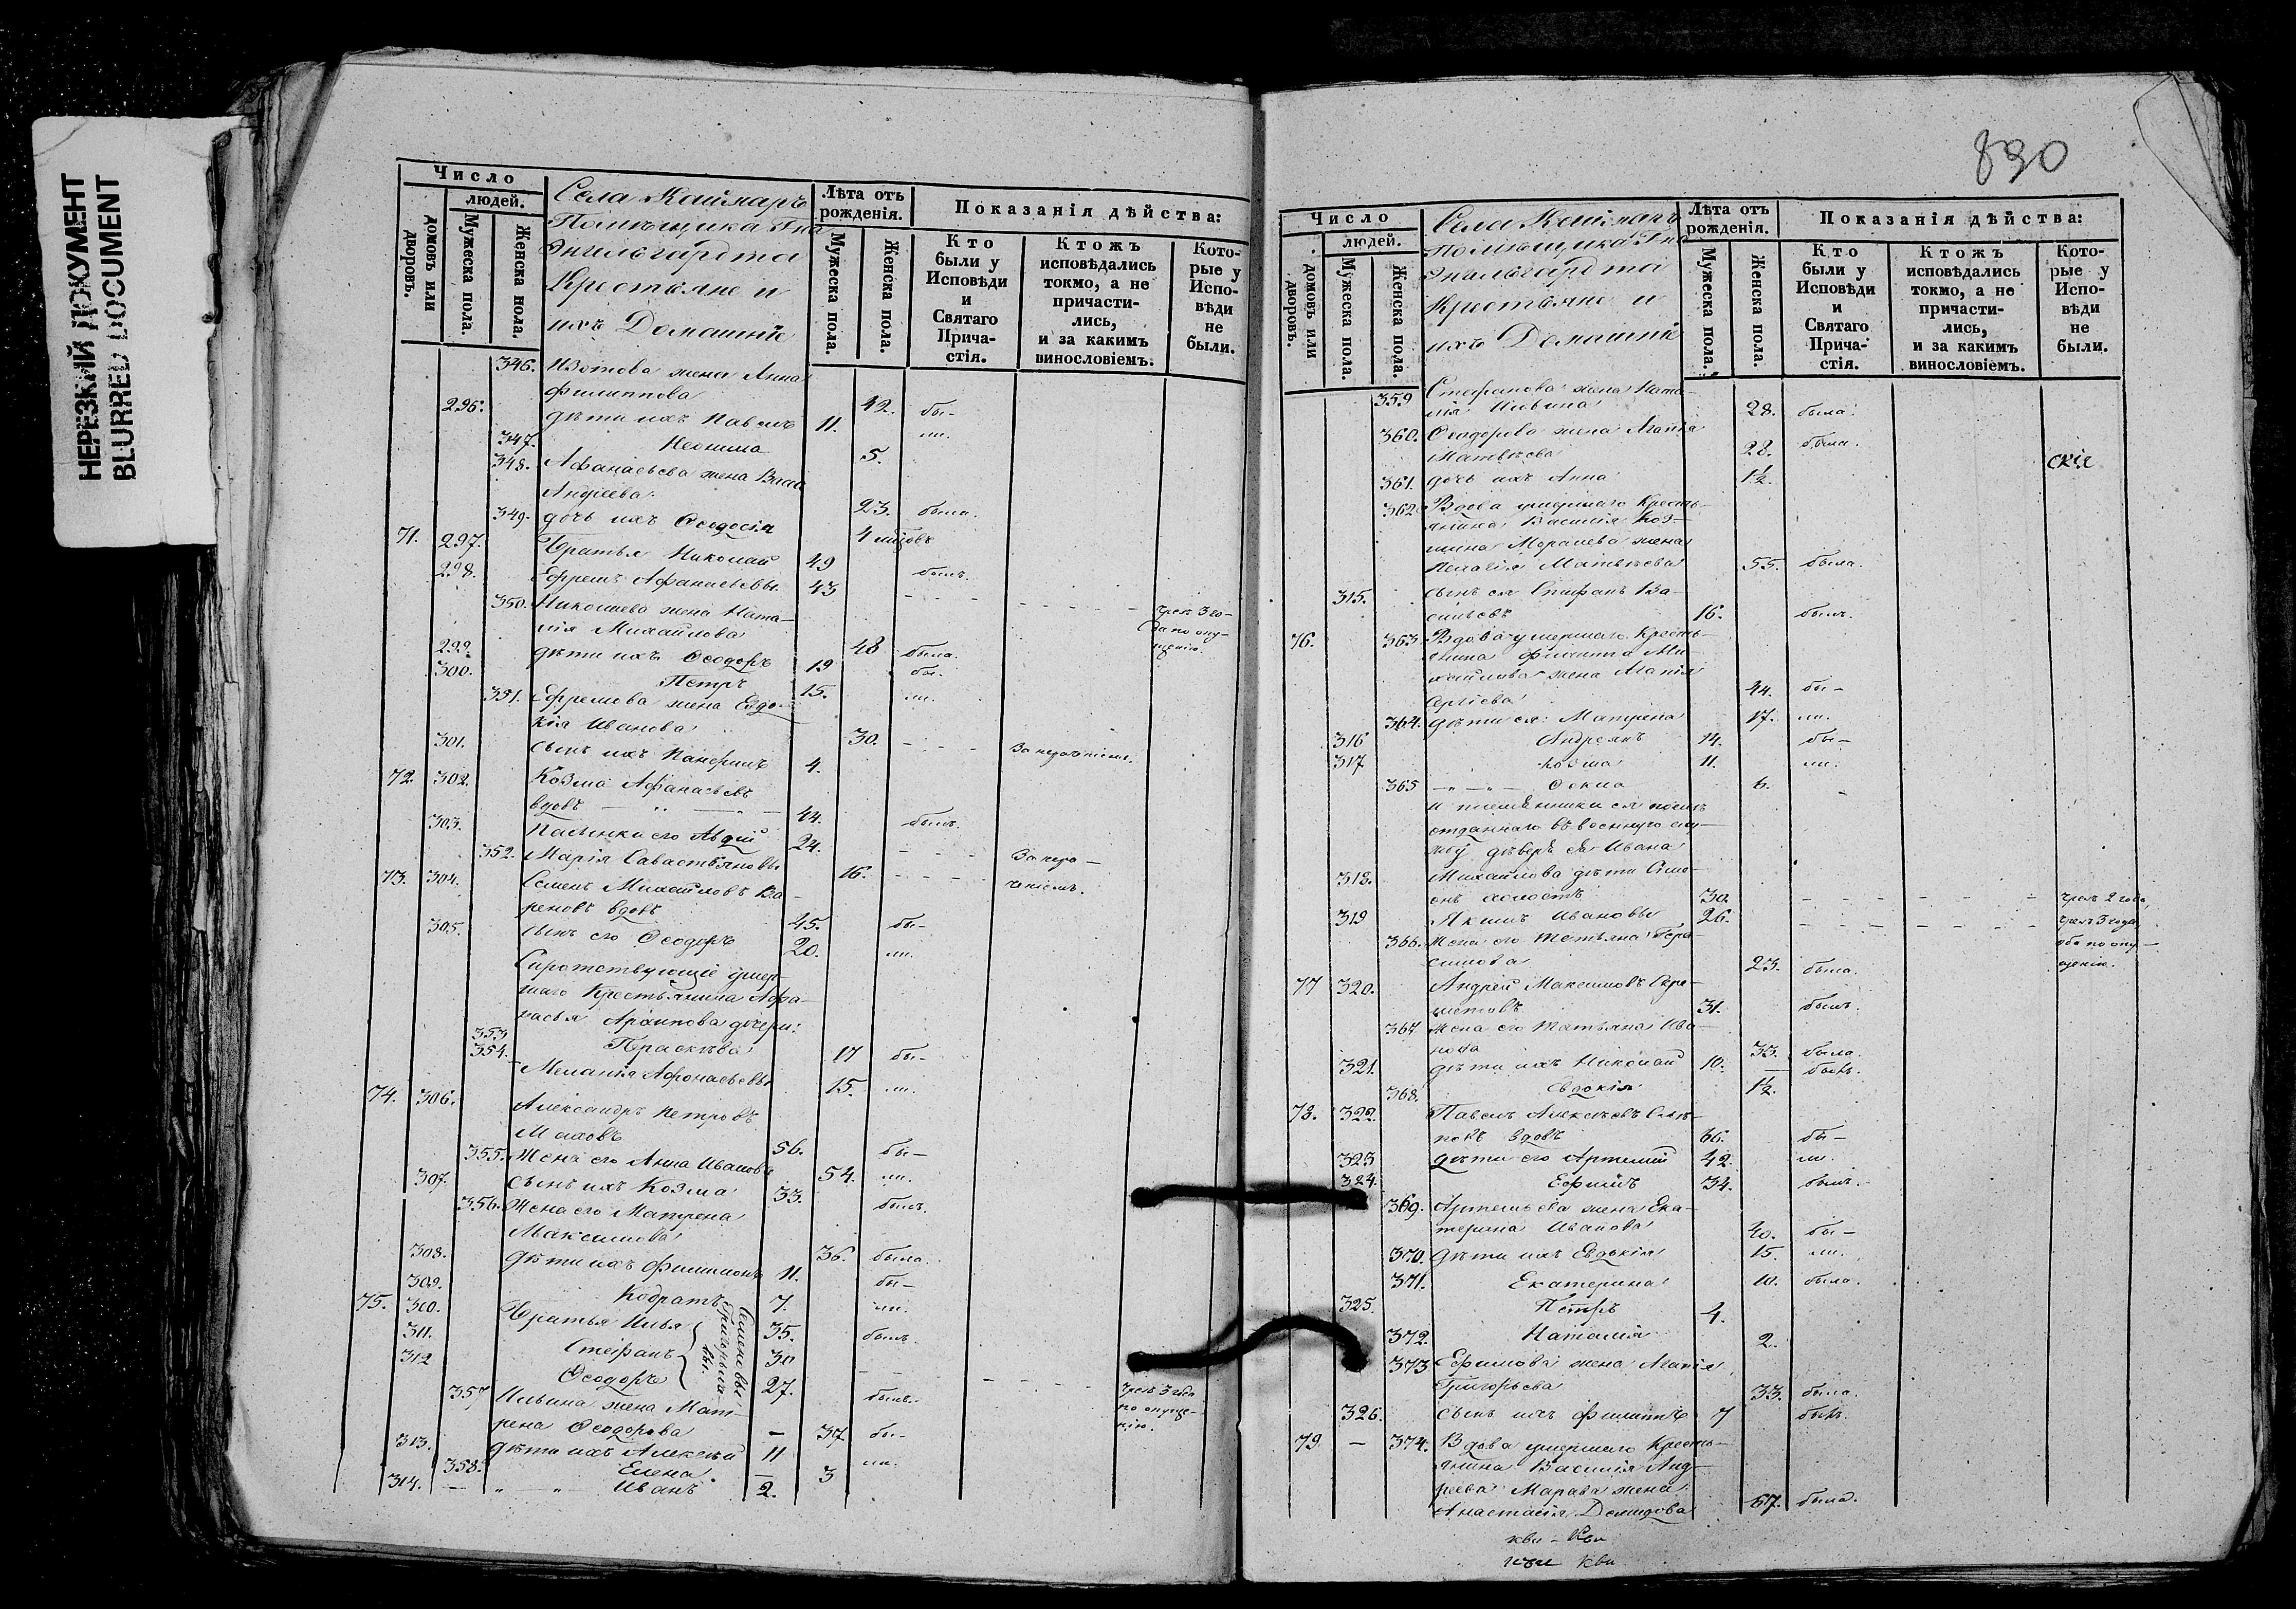 НЕРЕЗКИЙ ДОКУМЕНТ
BLURRED DOCUMENT
Число
людей.
домовъ или дворовъ.
Мужеска пола.
Женска пола.
Села Каймаръ
Помѣщика Гна
Энгельгардта
Крестьяне и
ихъ Домашніе
Лѣта отъ рожденія.
Мужеска пола.
Женска пола.
Показанія дѣйства:
Кто были у Исповѣди и Святаго Прича-стія.
Ктожъ исповѣдались токмо, а не причасти-лись, и за какимъ винословіемъ.
Кото-рые у Испо-вѣди не были.
346. Изотова жена Анна
Филиппова 42. бы-
296. дѣти ихъ Павелъ 11. ли.
347. 5.
348. Афанасьева жена
Андреева 23. была.
349. дочь ихъ Ѳеодосія 4
71. 297. Братья Николай 49 былъ.
298. Ефремъ Афанасьевы 43 - - - чрезъ 3 го-
да по опу-
щенію.
350. Николаева жена Ната-
лія Михайлова 48 была.
299. дѣти ихъ Ѳеодоръ 19 бы-
300. Петръ 15. ли.
351. Ефремова жена Евдо-
кія Иванова 30. - - -
301. сынъ ихъ 4.
72. 302. Козма Афанасьевъ
вдовъ 44. былъ.
303. Пасынки его Авдій 24. - - -
352. Марія Савастьяновы 16. - - -
73. 304. Семенъ Михайловъ Ва-
реновъ вдовъ 45. бы-
305. сынъ его Ѳеодоръ 20. ли.
Сиротствующіе умер-
шаго Крестьянина Афа-
насья Архипова дочери:
353 Параскева 17 бы-
354. Меланія Афонасьевы 15. ли.
74. 306. Александръ Петровъ
56. бы-
355. Жена его Анна Иванова 54. ли.
307. сынъ ихъ Козма 33. былъ.
356. Жена его Матрена
Максимова 36. была.
308. дѣти ихъ Филимонъ 11. бы-
309. Кодратъ 7. ли.
75. 300. Братья Илья 35. былъ.
311. Стефанъ 30 - - -
312 Ѳеодоръ 27. былъ.
Семеновы
чрезъ 3 года
по опуще-
нію.
357 Ильина жена Мат-
рена Ѳеодорова — 37 бы-
313. дѣти ихъ Алексѣй 11 ли.
358. Елена — 3
314. — „ — „ Иванъ 2.
890
Число
людей.
домовъ или дворовъ.
Мужеска пола.
Женска пола.
Села Каймаръ
Помѣщика Гна
Энгельгардта
Крестьяне и
ихъ Домашніе
Лѣта отъ рожденія.
Мужеска пола.
Женска пола.
Показанія дѣйства:
Кто были у Исповѣди и Святаго Прича-стія.
Ктожъ исповѣдались токмо, а не причасти-лись, и за какимъ винословіемъ.
Кото-рые у Испо-вѣди не были.
359 Стефанова жена Ната-
лія 28. была.
360. Ѳеодорова жена
Матвѣева 28. была.
скіе
361. дочь ихъ Анна 1½.
362 Вдова умершаго Кресть-
янина Василія Коз-
мина жена
Пелагія Матвѣева 55. была.
315. сынъ ея Стефанъ Ва-
сильевъ 16. былъ.
76. 363 Вдова умершаго Кресть-
янина Филиппа Ми-
хайлова жена
Сергіева 44. бы-
364. дѣти ея: Матрена 17. ли.
316 Андреянъ 14. бы-
317 Козма 11. ли.
365 — „ — „ — 6.
и племянники ея
отданнаго въ военную слу-
жбу деверя ея Ивана
318. Михайлова дѣти Симе-
онъ холостъ 30. - - - чрезъ 2 года,
319 Акимъ Ивановы 26. - - - чрезъ 3 года,
оба по опу-
щенію.
366. Жена его Татьяна Гера-
симова 23. была.
77 320. Андрей Максимовъ
31. былъ.
367 Жена его Татьяна Ива-
нова 33. была.
321. дѣти ихъ Николай 10. — былъ.
368. Евдокія 1½.
78. 322. Павелъ Алексѣевъ
вдовъ 66. бы-
323 дѣти его Артемій 42. ли.
324. Ефимъ 34. былъ.
369. Артемьева жена Ека-
терина Иванова 40. бы-
370. дѣти ихъ Евдокія 15. ли.
371. Екатерина 10. была.
325. Петръ 4.
372. Наталія 2.
373 Ефимова жена
Григорьева 33. была.
326. сынъ ихъ Филиппъ 7 былъ.
79 — 374. Вдова умершаго Кресть-
янина Василія Анд-
реева жена
Анастасія Демидова 67. была.